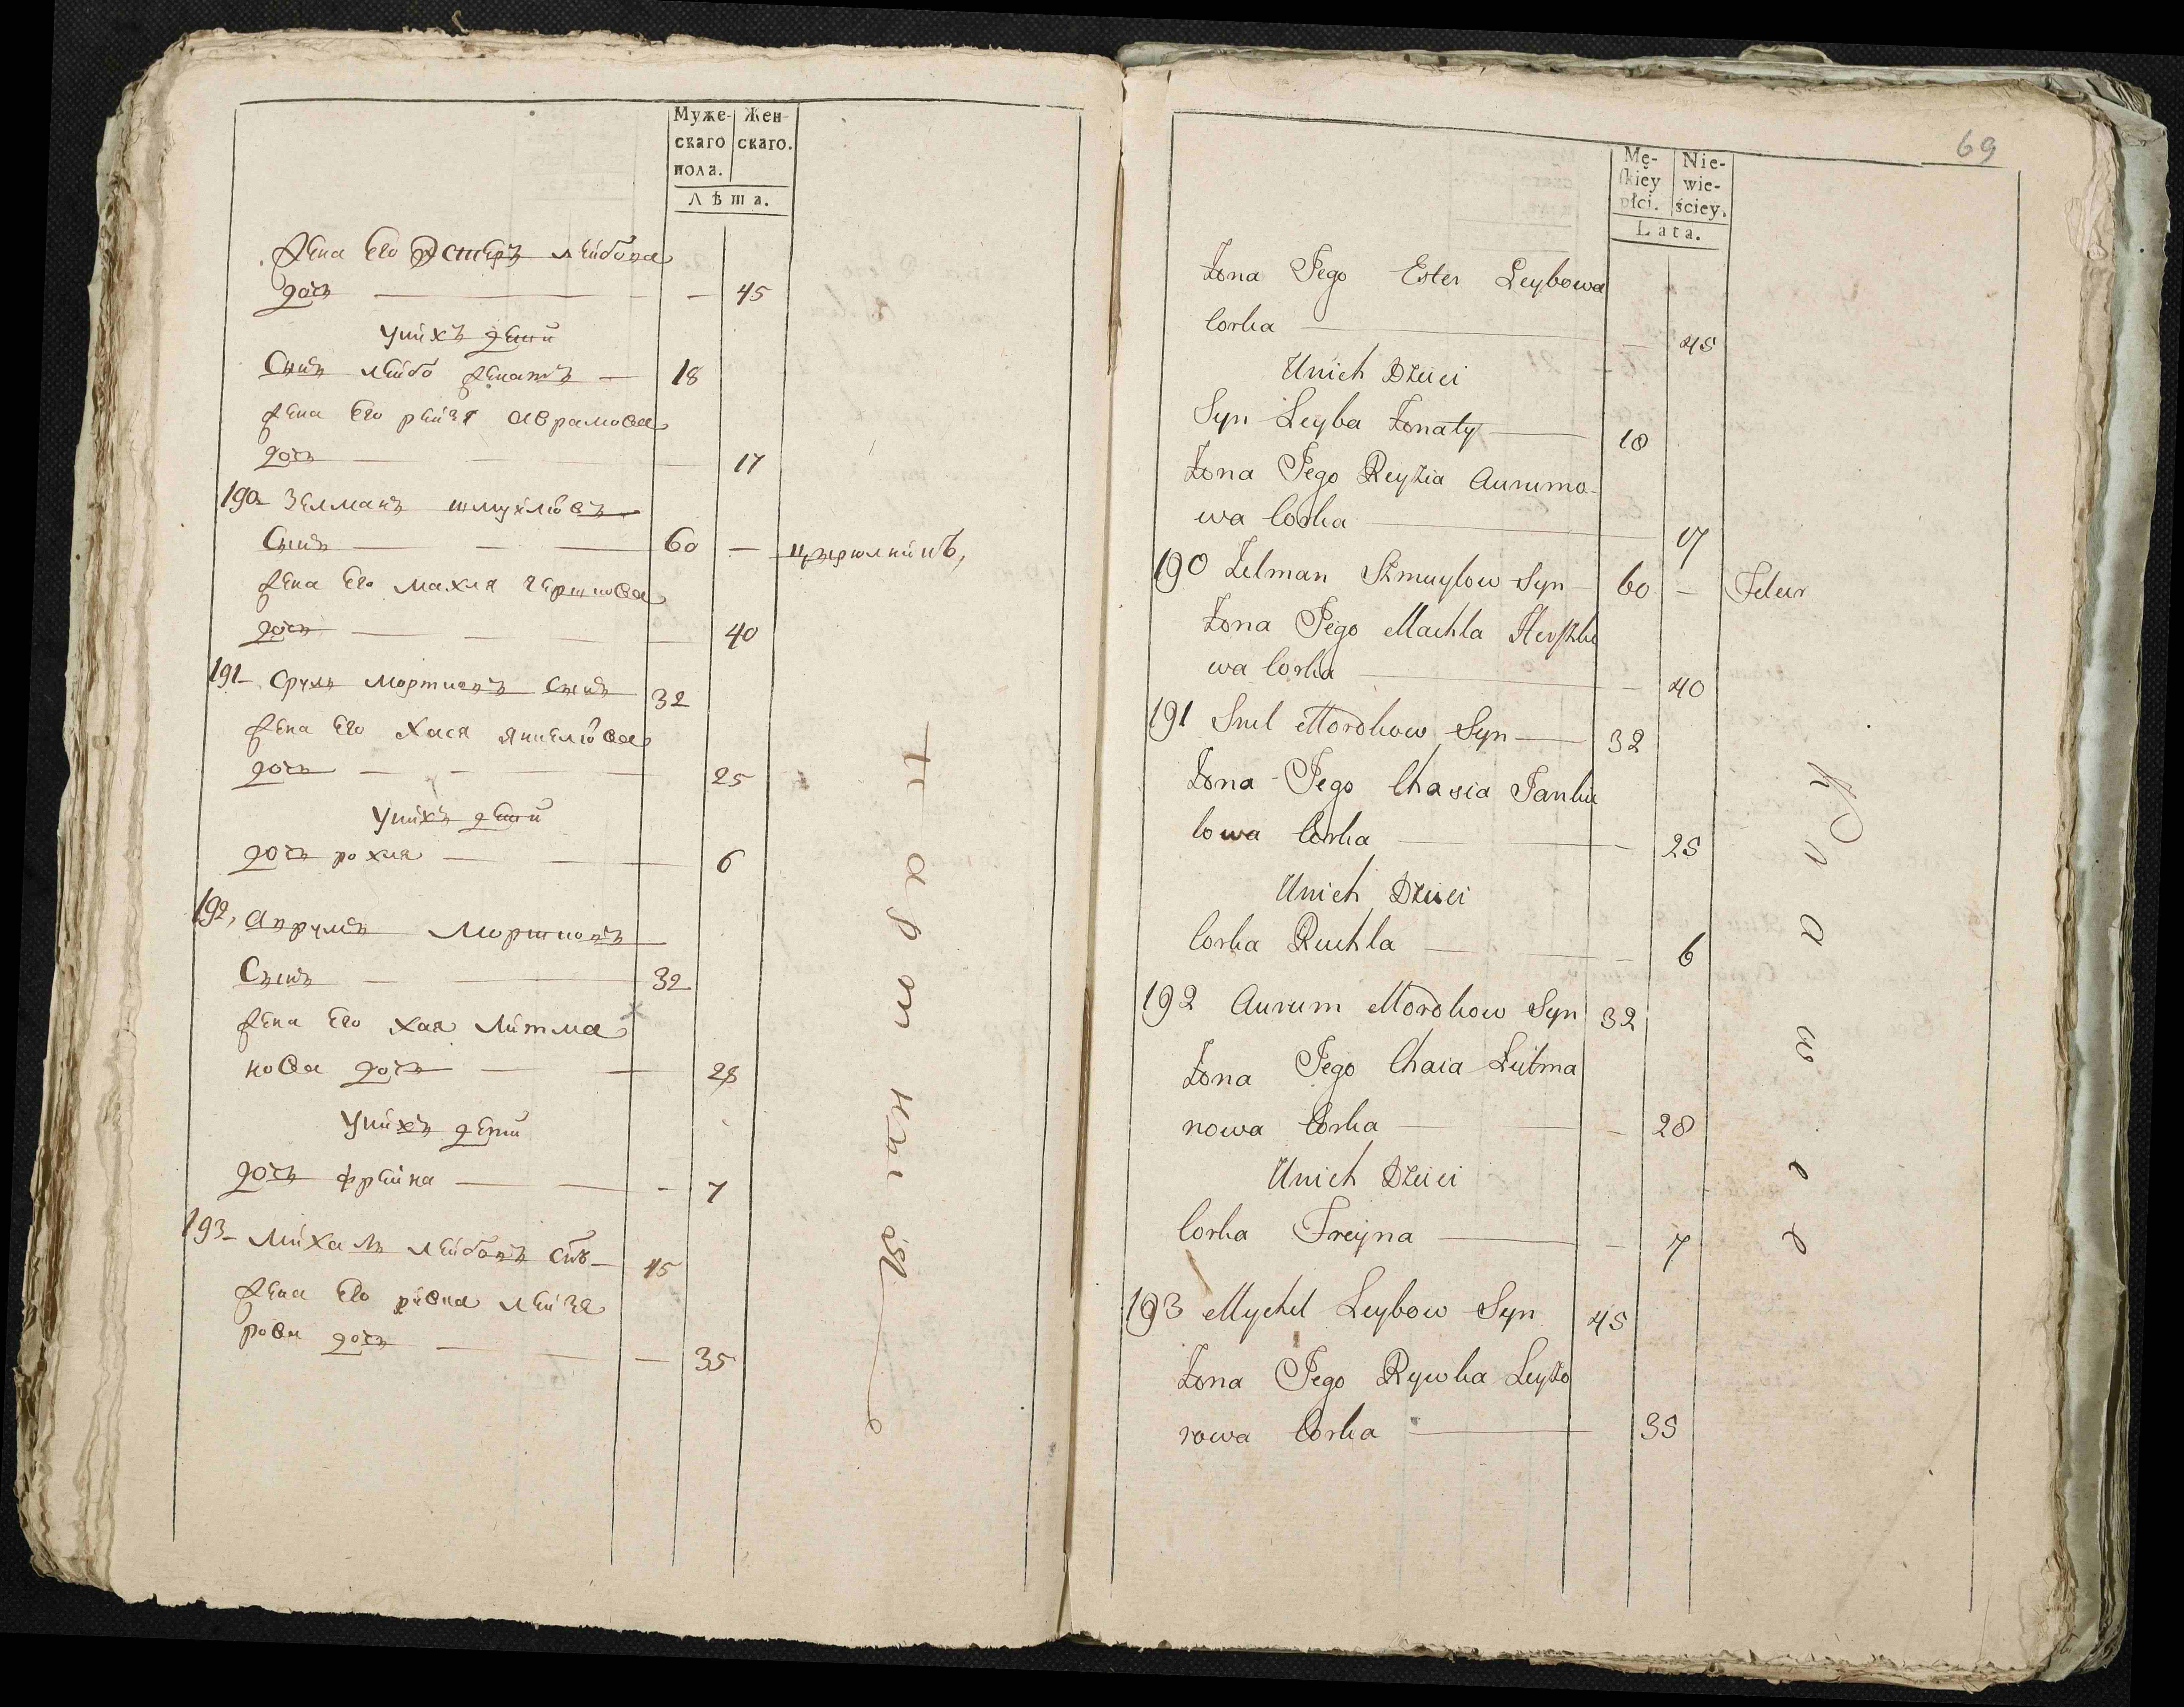 Муже-
скаго
пола.
Жен-
скаго.
Лѣта.
Жена Его Эстеръ лейбова
дочь — — 45
Унихъ дети
Сынъ лейбо женатъ — 18
Жена Его рейзя аврамова
дочь — 17
190 Зелманъ шмуйловъ
Сынъ — 60 —
Жена Его махля гершкова
дочь — 40
191 Сруль Мортковъ Сынъ 32
Жена Его Хася янкелюва
дочь — 25
Унихъ дети
дочь рохля — 6
192, Мортковъ
Сынъ — 32
Жена Его хая литма
нова дочь — 28
Унихъ дети
дочь фрейна — 7
193 Михаль лейбовъ снъ 45
Жена Его ривка лейзе
рова дочь — 35
69
Mę-
ſkiéy
płci.
Nie-
wie-
ściey.
Lata.
Żona Jego Ester Leybowa
Corka — 45
Unich Dzieci
Syn Leyba Żonaty — 18
Żona Jego Reyzia Aurumo-
wa Corka — 17
190 Zelman Szmuylow Syn — 60 —
Żona Jego Machla Herszko
wa Corka — 40
191 Srul Mordkow Syn — 32
Żona Jego Chasia Jankie
lowa Corka — 25
Unich Dzieci
Corka Ruchla — 6
192 Aurum Mordkow Syn 32
Żona Jego Chaia Leitma
nowa Corka — 28
Unich Dzieci
Corka Freyna — 7
193 Mychel Leybow Syn 45
Żona Jego Rywka Leyzo
rowa Corka — 35